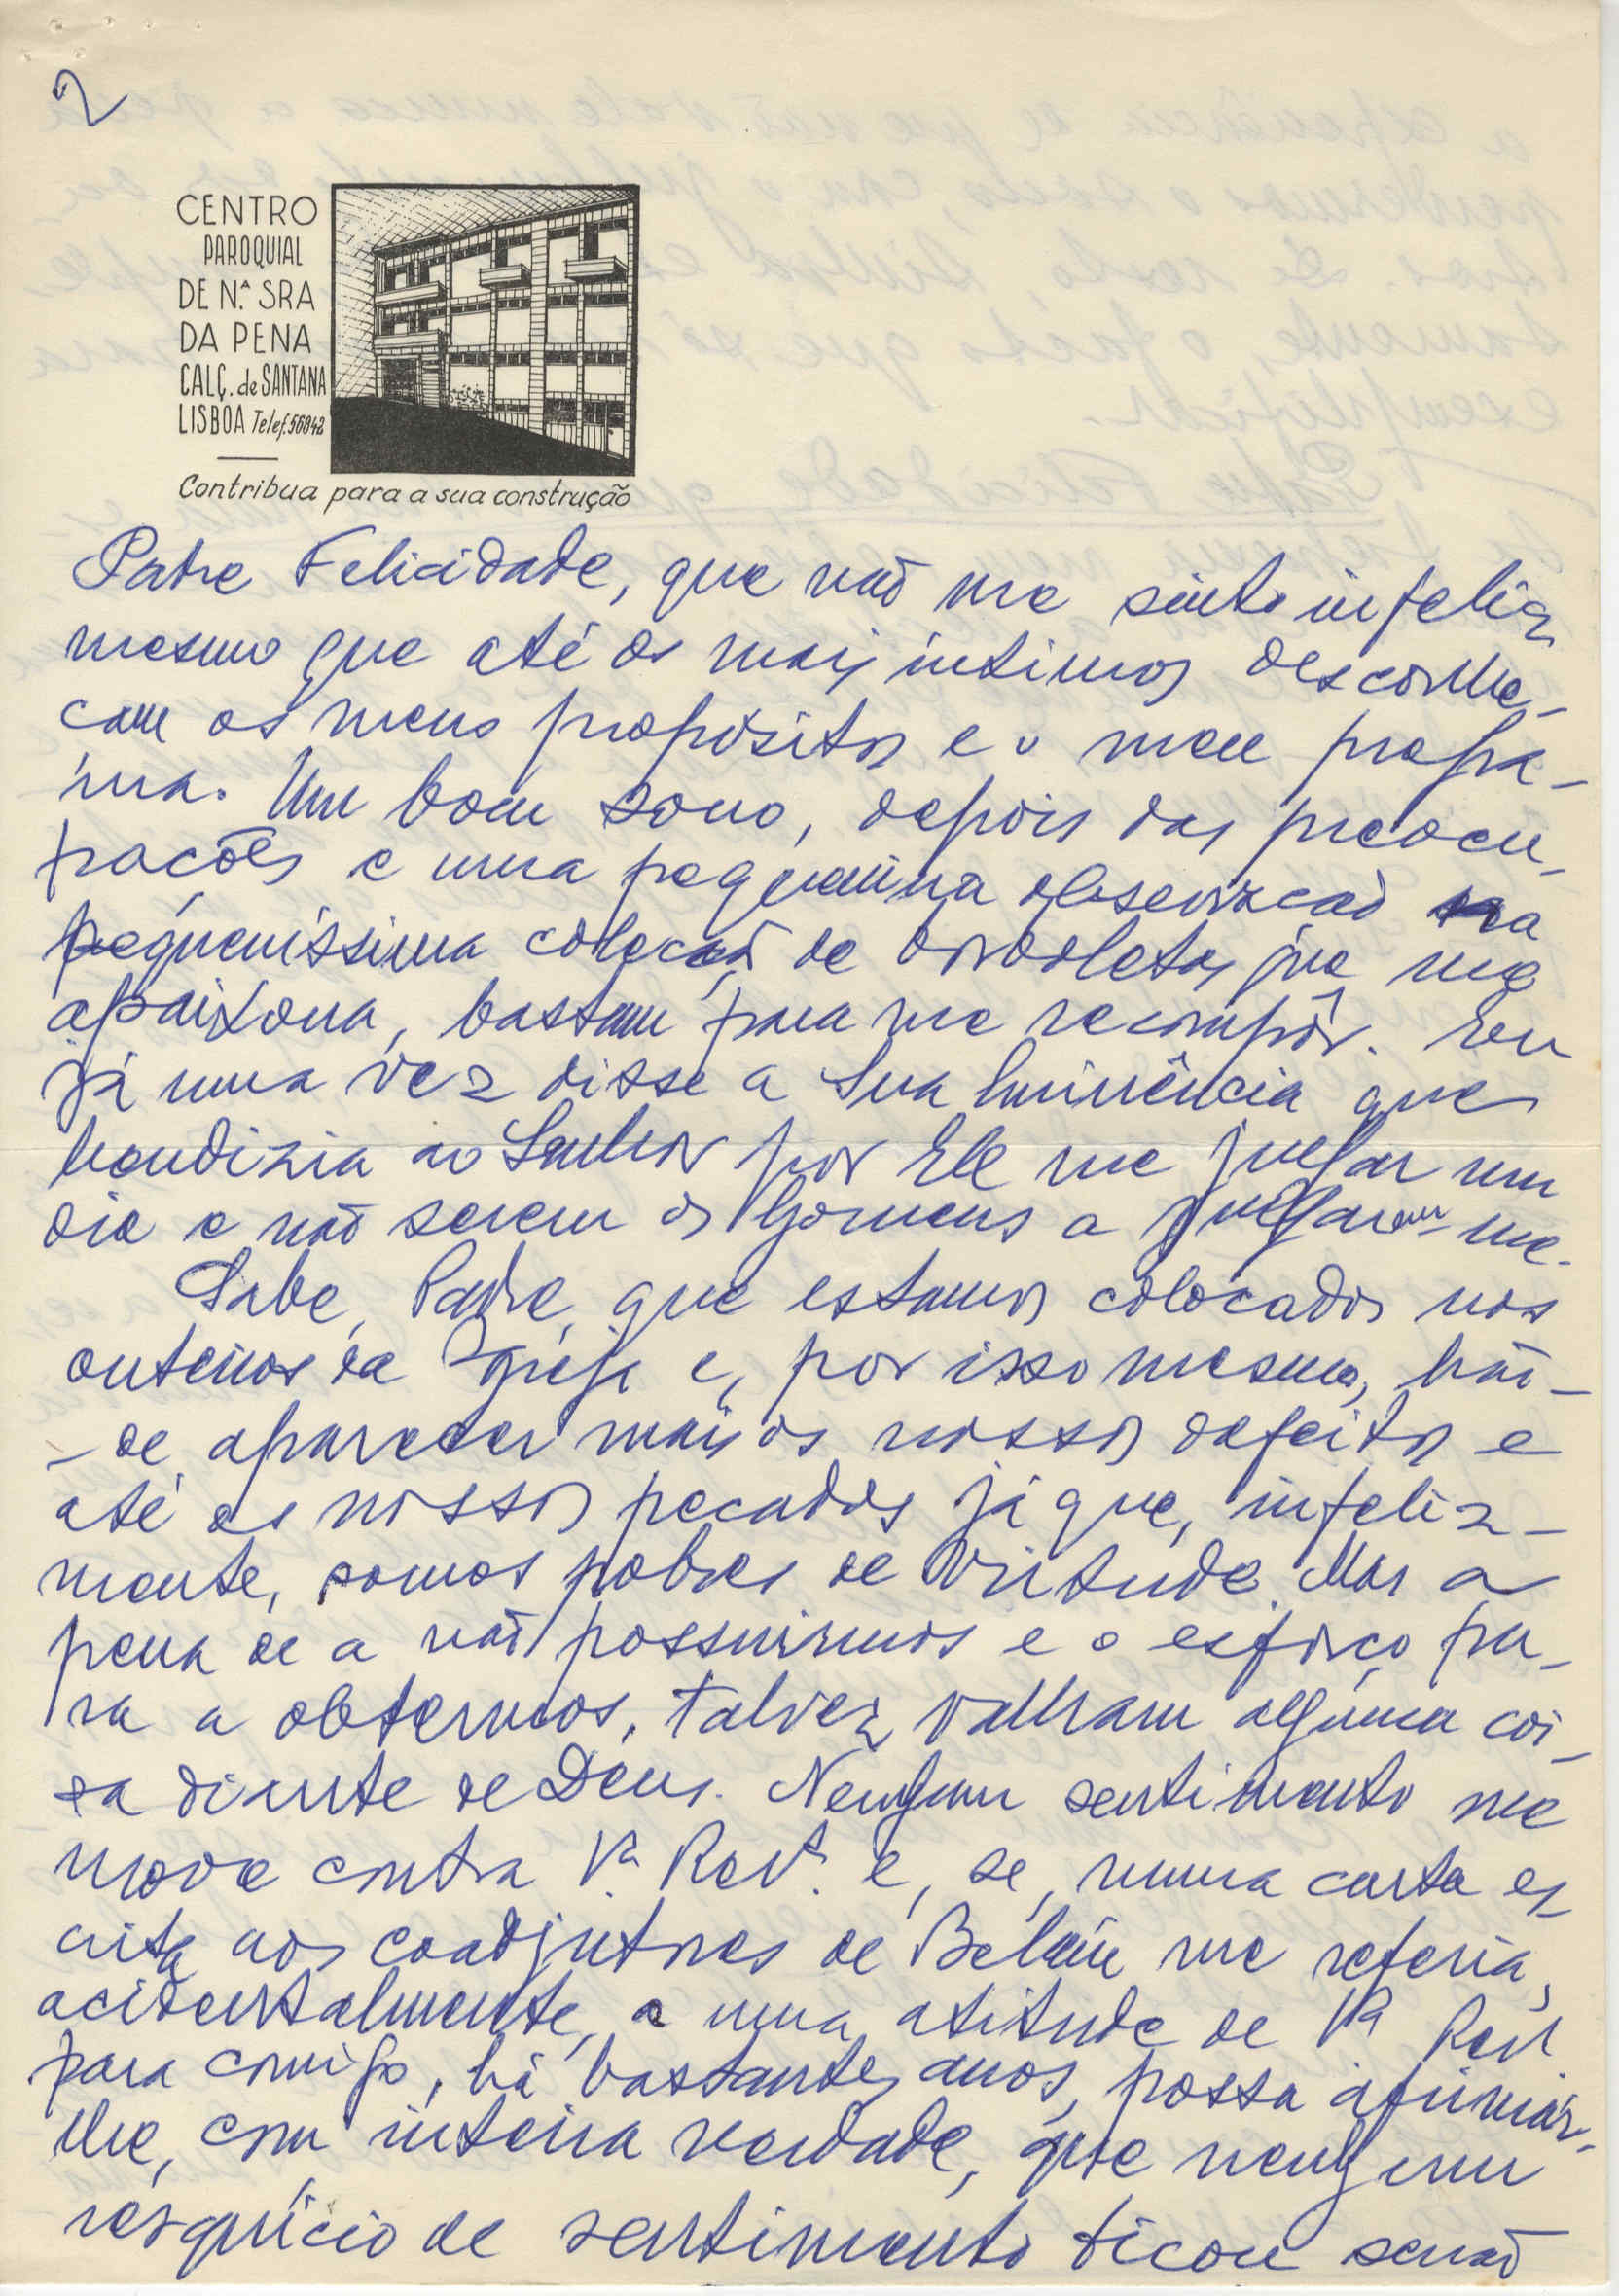 2
CENTRO
PAROQUIAL
DE N.ª SRA
DA PENA
CALÇ. de SANTANA
LISBOA Telef. 56842
Contribua para a sua construção
Padre Felicidade, que não me sinto infeliz
mesmo que até os mais íntimos desconhe-
çam os meus propósitos e o meu progra-
ma. Um bom sono, depois das preocu-
pações e uma pequenina observação na
pequeníssima colecção de borboletas que me
apaixona, bastam para me recompôr. Eu
já uma vez disse a Sua Eminência que
bendizia ao Senhor por Ele me julgar um
dia e não serem os homens a julgarem-me.
Sabe, Padre, que estamos colocados nos
outeiros da Igreja e, por isso mesmo, hão-
-de aparecer mais os nossos defeitos e
até os nossos pecados já que, infeliz-
mente, somos pobres de virtude. Mas a
pena de a não possuirmos e o esforço pa-
ra a obtermos, talvez valham alguma coi-
sa diante de Deus. Nenhum sentimento me
move contra V.ª Rev.ª e, se, numa carta es
crita aos coadjutores de Belém me referia,
acidentalmente, a uma atitude de Vª Rev.
para comigo, há bastantes anos, posso afirmar-
lhe, com inteira verdade, que nenhum
resquício de sentimento ficou senão